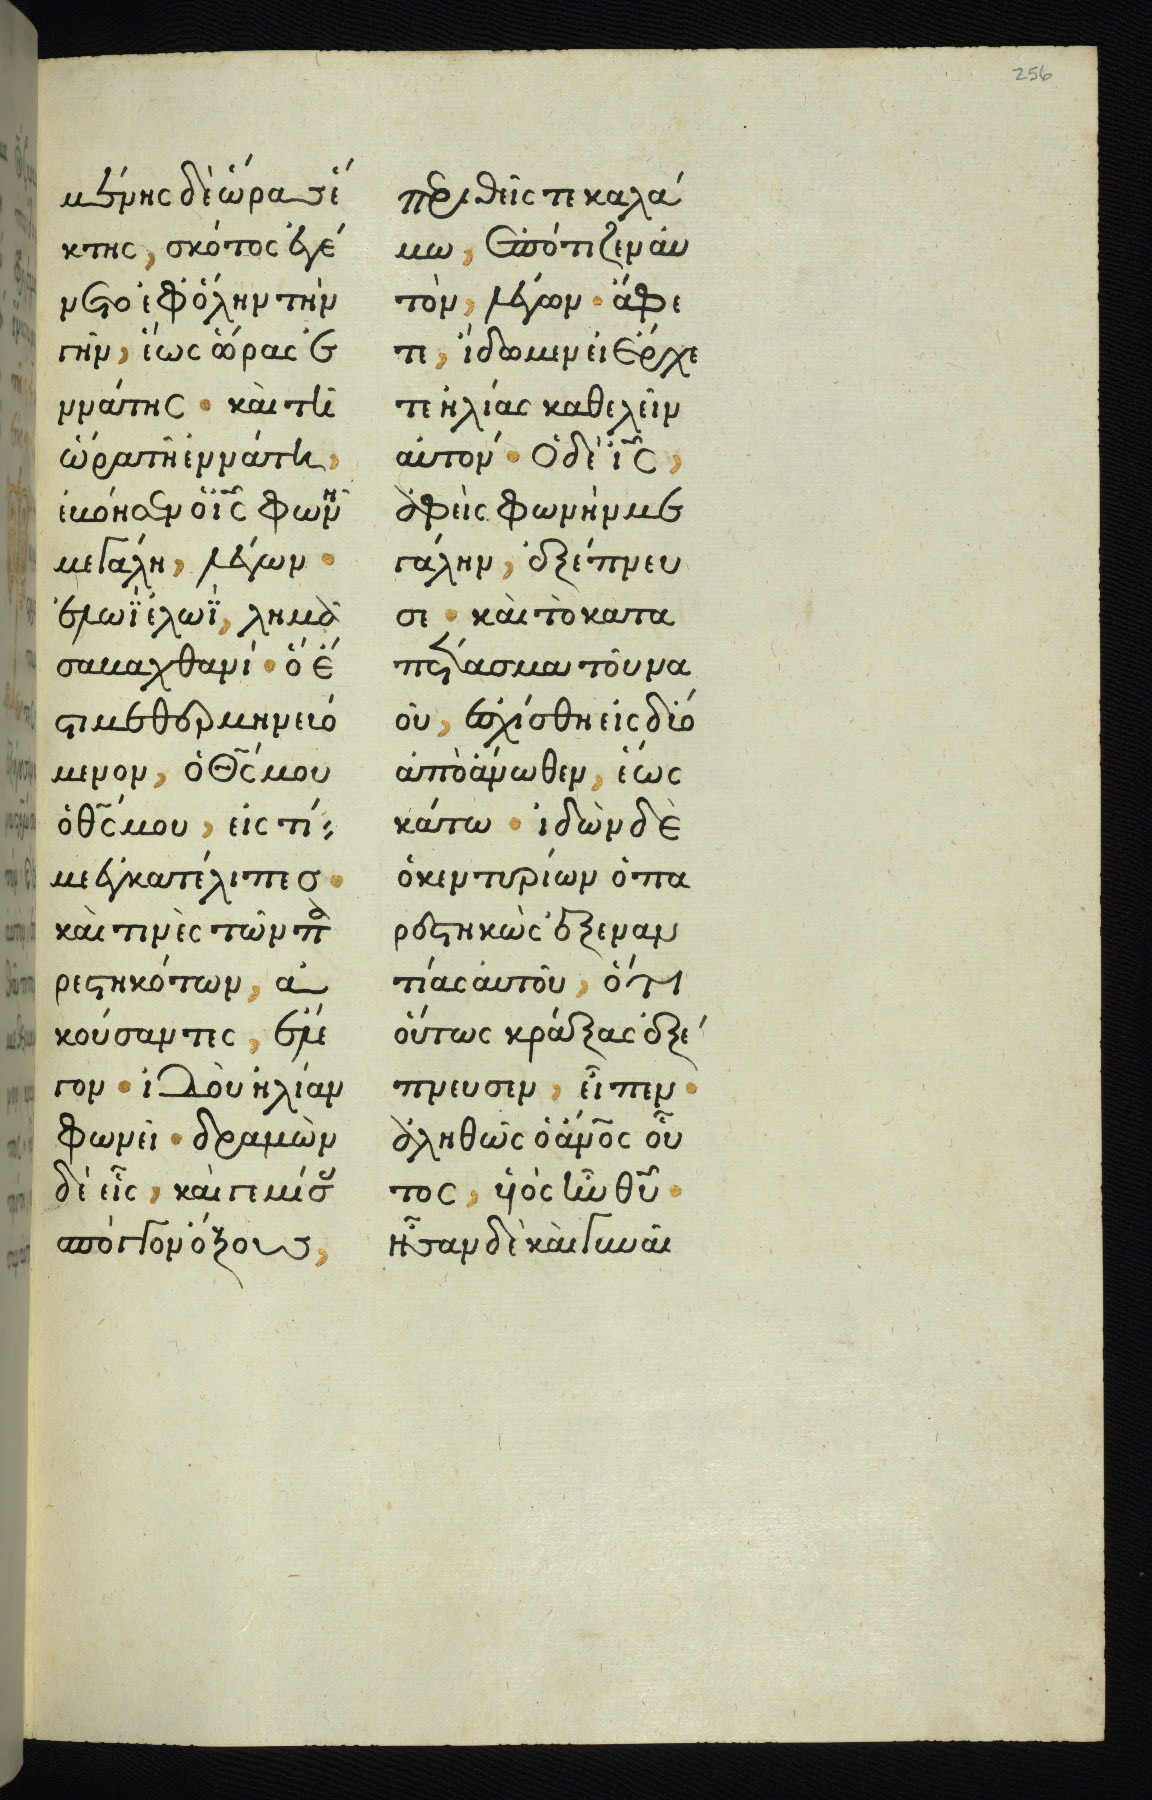 256
μένης δὲ ὥρας ἕ
κτης, σκότος ἐγέ
νετο ἐφ ὅλην τὴν
γῆν, ἕως ὥρας ἐ
ννάτης · καὶ τῆ
ὥρα τῆ ἐννάτη,
ἐβόησεν ὁ ι̅ς̅ φωνῆ
μεγάλη, λέγων ·
ἐλωῒ ἐλωῒ, λημᾶ
σαβαχθανί · ὅ ἐ
στι μεθερμηνευό
μενον, ὁ θ̅ς̅ μου
ὁ θ̅ς̅ μου, εἰς τί
με ἐγκατέλιπες ·
καὶ τινὲς τῶν πα
ρεστηκότων, ἀ
κούσαντες, ἔλε
γον · ἰδοὺ ἠλίαν
φωνεῖ · δραμὼν
δὲ εἷς, καὶ γεμίσας
σπόγγον ὄξους,
περιθείς τε καλά
μω, ἐπότιζεν αὐ
τὸν, λέγων · ἄφε
τε, ἴδωμεν εἰ ἔρχε
τε ἠλίας καθελεῖν
αὐτον · ὁ δὲ ι̅ς̅,
ἀφεὶς φωνὴν με
γάλην, ἐξέπνευ
σε · καὶ τὸ κατα
πέτασμα τοῦ να
οῦ, ἐσχίσθη εἰς δύο
ἀπὸ ἄνωθεν, ἕως
κάτω · ἰδὼν δὲ
ὁ κεντυρίων ὁ πα
ρεστηκὼς ἐξεναν
τίας αὐτοῦ, ὅτι
οὕτως κράξας ἐξέ
πνευσεν, εἶπεν ·
ἀληθῶς ὁ α̅ν̅ο̅ς οὗ
τος, υἱὸς ἦν θ̅υ̅ ·
ἦσαν δὲ καὶ γυναῖ